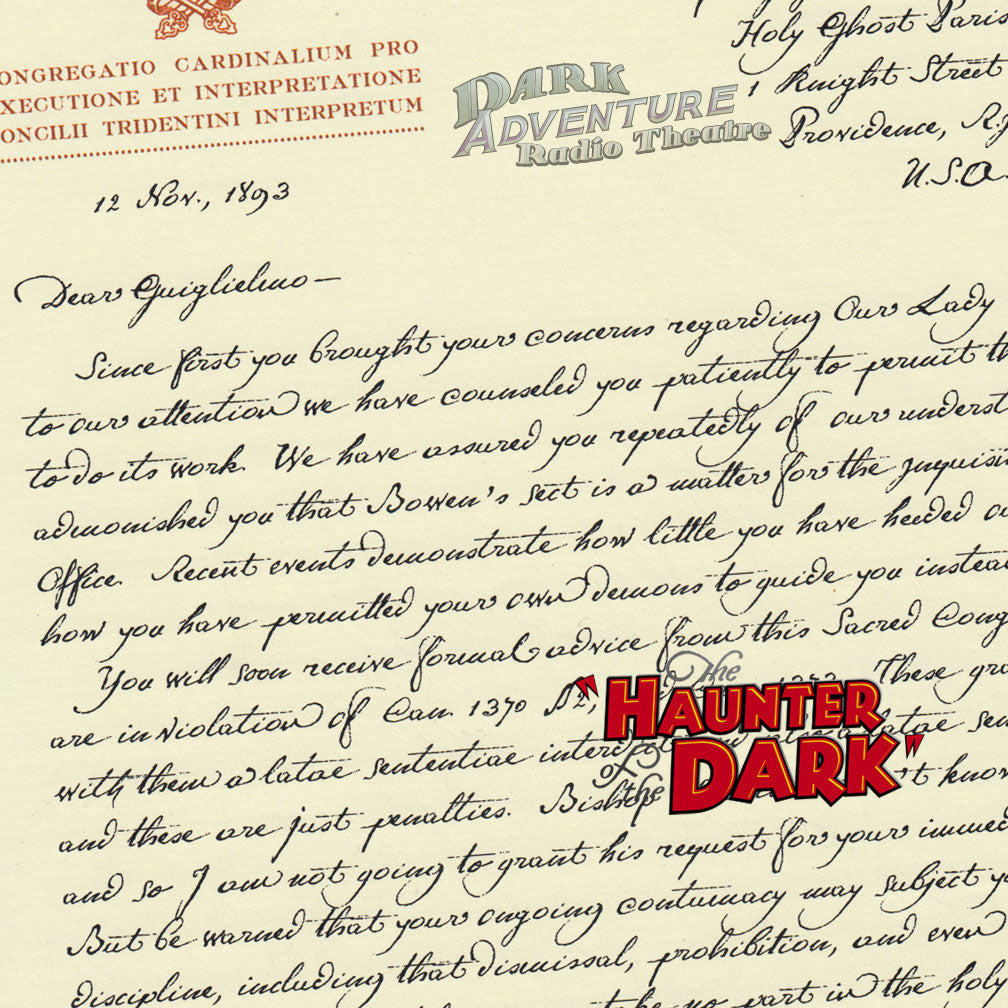 Holy Ghost Paris
1 Knight Street
Providence, R.
U.S.A.
ONGREGATIO CARDINALIUM PRO
XECUTIONE ET INTERPRETATIONE
ONCILII TRIDENTINI INTERPRETUM
DARK
ADVENTURE
Radio Theatre
12 Nov., 1893
Dear Guiglielmo —
Since first you brought your concerns regarding Our Lady
to our attention we have counseled you patiently to permit th
to do its work. We have assured you repeatedly of our underst
admonished you that Bowen's sect is a matter for the Inquisi
Office. Recent events demonstrate how little you have heeded ou
how you have permitted your own demons to guide you instea
You will soon receive formal advice from this Sacred Cong
are in violation of Can. 1370 §2, These gra
with them a latae sententiae inter latae sen
and these are just penalties. Bishop t know
and so I am not going to grant his request for your immed
But be warned that your ongoing contumacy may subject yo
discipline, including that dismissal, prohibition, and even
take no part in the holy
The
"HAUNTER
of the
DARK"